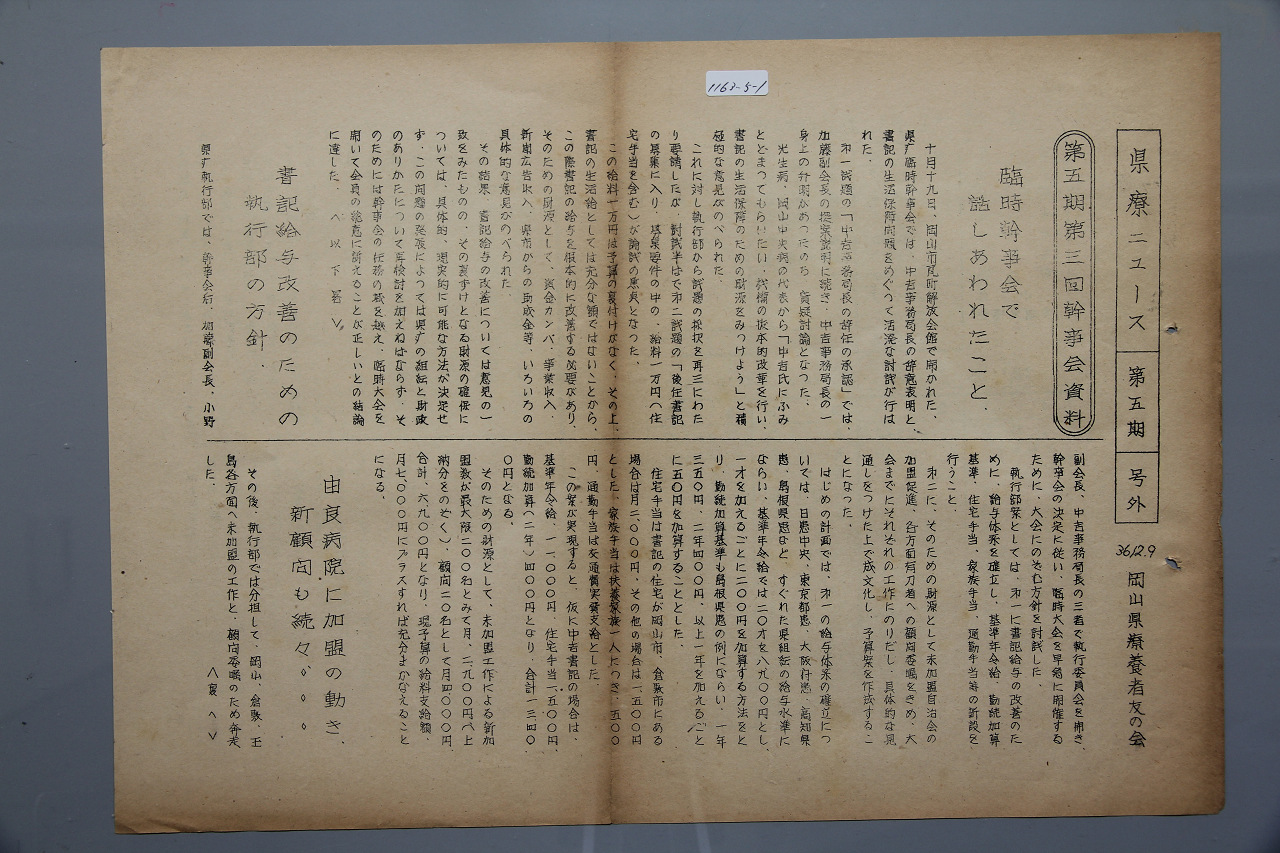 1162-5-1
県療ニュース 第五期 号外
36.12.9
岡山県療養者友の会
第五期第三回幹事会資料
臨時幹事会で
話しあわれたこと.
十月十九日、岡山市尾町解放会館で開かれた、
県疗臨時幹事会では、中吉事務局長の辞意表明と、
書記の生活保障問題をめぐって活溌な討議が行は
れた。
才一議題の「中吉事務局長の辞任の承認」では、
加藤副会長の提案説明に続き、中吉事務局長の一
身上の弁明があつたのち、質疑討論となつた、
光生病、岡山中央病の代表から「中吉氏にふみ
とどまつてもらいたい、機構の抜本的改革を行い、
書記の生活保障のための財源をみつけよう」と積
極的な意見がのべられた。
これに対し執行部から議題の採択を再三にわた
り要請したが、討議半ばで才二議題の「後任書記
の募集に入り、募集要件の中の、給料一万円へ住
宅手当を含む)が論議の焦点となつた。
この給料一万円は予算の裏付けがなく、その上、
書記の生活給としては充分な額ではないことから、
この際書記の給与を根本的に改善する必要があり、
そのための財源として、資金カンパ、事業収入、
新聞広告収入、県市からの助成金等、いろいろの
具体的な意見がのべられた。
その結果、書記給与の改善については意見の一
致をみたものの、その裏ずけとなる財源の確保に
ついては、具体的、現実的に可能な方法が決定せ
ず、この問題の発展によつては県疗の組織と財政
のありかたについて再検討を加えねばならず、そ
のためには幹事会の任務の域を越え、臨時大会を
開いて会員の総意に訴えることが正しいとの結論
に達した。 〈以下畧〉
書記給与改善のための
執行部の方針.
県疗執行部では、善事会后、加藤副会長、小野
副会長、中吉事務局長の三者で執行委員会を開き、
幹事会の決定に従い、臨時大会を早急に開催する
ために、大会にのぞむ方針を討議した。
執行部案としては、才一に書記給与の改善のた
めに、給与体系を確立し、基準年令給、勤続加算
基準、住宅手当、家族手当、通勤手当等の新設を
行うこと、
才二に、そのための財源として未加盟自治会の
加盟促進、各方面有力者への顧問委嘱をきめ、大
会までにそれぞれの工作にのりだし、具体的な見
通しをつけた上で成文化し、予算案を作成するこ
とになつた。
はじめの計画では、才一の給与体系の確立につ
いては、日患中央、東京都患、大阪府患、高知県
患、島根県患など、すぐれた県組織の給与水準に
ならい、基準年令給では二〇才を八、九〇〇円とし、
一才を加えるごとに二〇〇円を加算する方法をと
り、勤続加算基準も島根県患の例にならい、一年
三五〇円、二年四〇〇円、以上一年を加えるごと
に五〇円を加算することとした。
住宅手当は書記の住宅が岡山市、倉敷市にある
場合は月二、〇〇〇円、その他の場合は一、五〇〇円
とした、家族手当は扶養家族一人につき一、五〇〇
円、通勤手当は交通費実費支給とした。
この案が実現すると、仮に中吉書記の場合は、
基準年令給、一一、〇〇〇円、住宅手当一、五〇〇円、
勤続加算(二年)四〇〇円となり、合計一三、四〇
〇円となる。
そのための財源として、未加盟工作による新加
盟数が最大限二〇〇名とみて月、二、九〇〇円(上
納分をのぞく)、顧問二〇名として月四、〇〇〇円、
合計、六、九〇〇円となり、現予算の給料支給額、
月七、〇〇〇円にプラスすれば充分まかなえること
になる。
由良病院に加盟の動き、
新顧問も続々。。。
その後、執行部では分担して、岡山、倉敷、玉
島各方面へ未加盟の工作と、顧問委嘱のため奔走
した。 〈裏へ〉